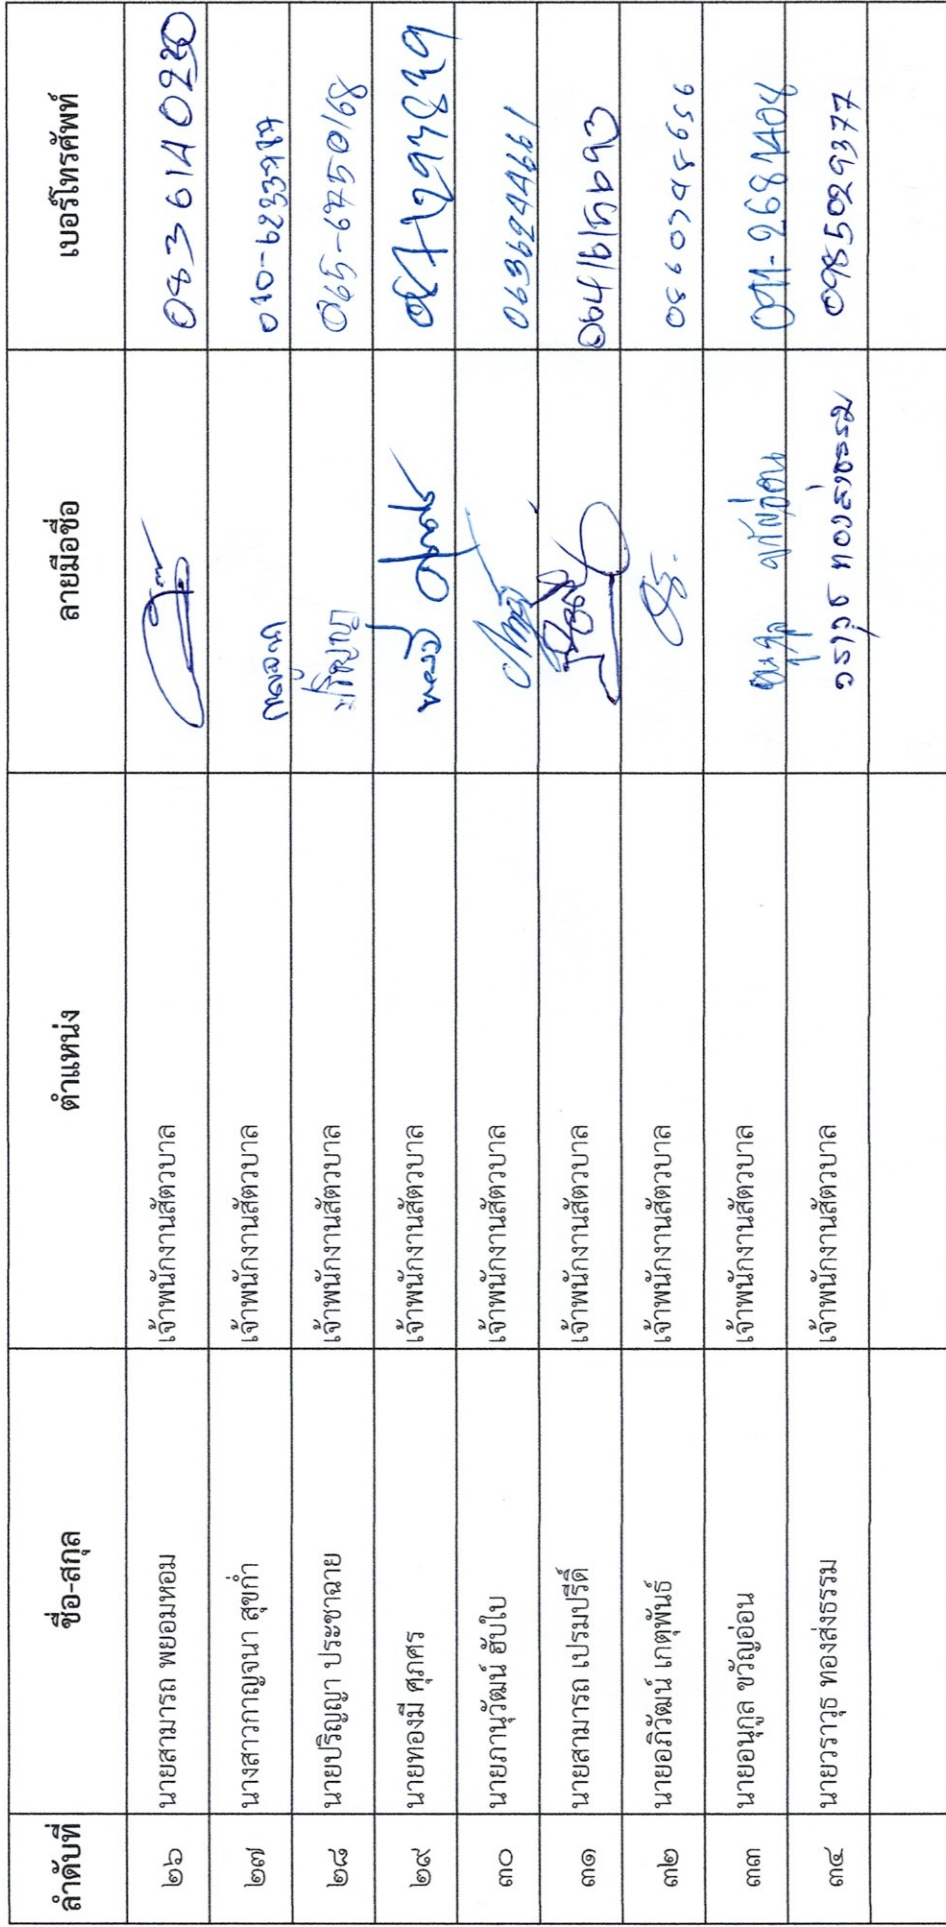 ลำดับที่ ชื่อ-สกุล ตำแหน่ง ลายมือชื่อ เบอร์โทรศัพท์
๒๖ นายสามารถ พยอมหอม เจ้าพนักงานสัตวบาล 0836140220
๒๗ นางสาวกาญจนา สุขก่ำ เจ้าพนักงานสัตวบาล กาญจนา
๒๘ นายปริญญา ประชาฉาย เจ้าพนักงานสัตวบาล ปริญญา 065-6750168
๒๙ นายทองมี ศุภศร เจ้าพนักงานสัตวบาล ทองมี ศุภศร
๓๐ นายภานุวัฒน์ ฮับใบ เจ้าพนักงานสัตวบาล 0636244661
๓๑ นายสามารถ เปรมปรีดิ์ เจ้าพนักงานสัตวบาล
๓๒ นายอภิวัฒน์ เกตุพันธ์ เจ้าพนักงานสัตวบาล
๓๓ นายอนุกูล ขวัญอ่อน เจ้าพนักงานสัตวบาล อนุกูล ขวัญอ่อน
๓๔ นายวราวุธ ทองส่งธรรม เจ้าพนักงานสัตวบาล วราวุธ ทองส่งธรรม 0985029377